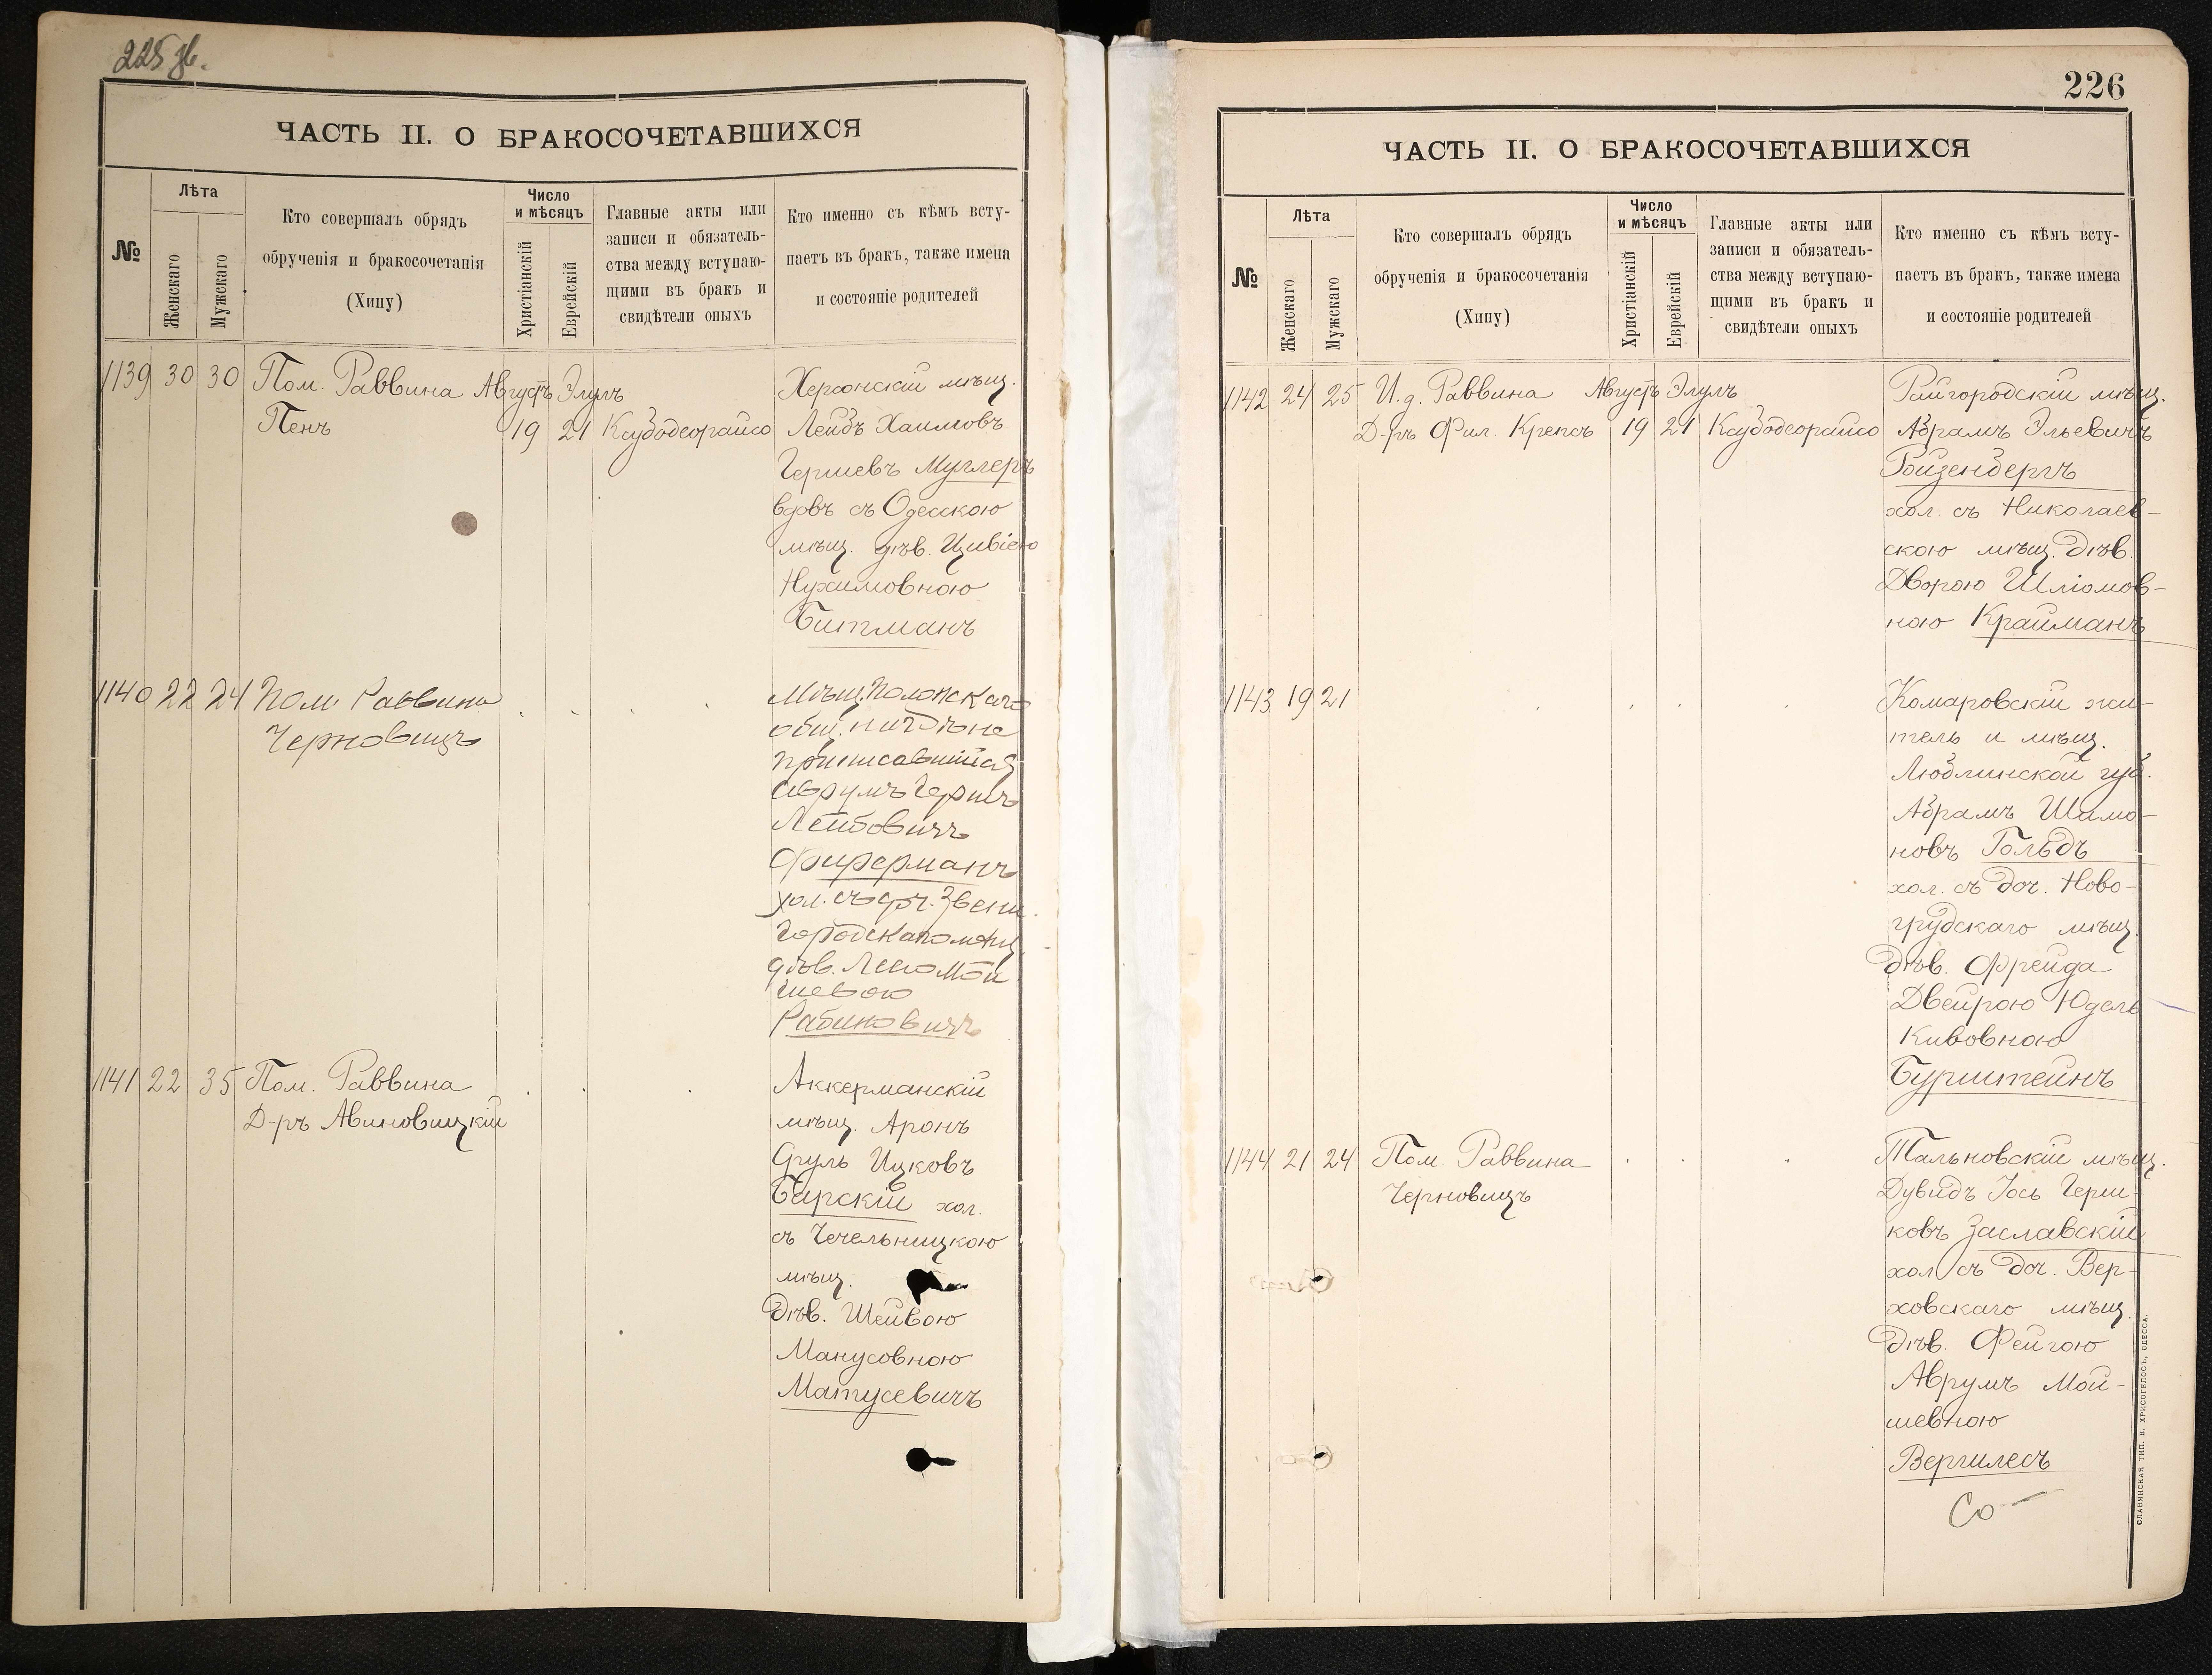 225 об.
ЧАСТЬ II. О БРАКОСОЧЕТАВШИХСЯ
№
Лѣта
Женскаго
Мужскаго
Кто совершалъ обрядъ
обрученія и бракосочетанія
(Хипу)
Число
и мѣсяцъ
Христіанскій
Еврейскій
Главные акты или
записи и обязатель-
ства между вступаю-
щими въ бракъ и
свидѣтели оныхъ
Кто именно съ кѣмъ всту-
паетъ въ бракъ, также имена
и состояніе родителей
1139 30 30 Пом. Раввина Августъ Элулъ Херсонскій мѣщ.
Пенъ 19 21 Ксубодеорайсо Лейбъ Хаимовъ
Гершевъ Муллеръ
вдовъ съ Одесскою
мѣщ. дѣв. Цивіею
Нухимовною
Битманъ
1140 22 24 Пом. Раввина Мѣщ. Полонскаго
Черновицъ общ. нигдѣ не
приписавшійся
Аврумъ Гершъ
Лейбовичъ
Фиферманъ
хол. съ дч. Звени
городскаго мѣщ
дѣв. Леею Мой
шевою
Рабиновичъ
1141 22 35 Пом. Раввина Аккерманскій
Д-ръ Авиновицкій мѣщ. Аронъ
Сруль Ицковъ
Барскій хол.
съ Чечельницкою
мѣщ.
дѣв. Шейвою
Манусовною
Матусевичъ
226
ЧАСТЬ II. О БРАКОСОЧЕТАВШИХСЯ
№
Лѣта
Женскаго
Мужскаго
Кто совершалъ обрядъ
обрученія и бракосочетанія
(Хипу)
Число
и мѣсяцъ
Христіанскій
Еврейскій
Главные акты или
записи и обязатель-
ства между вступаю-
щими въ бракъ и
свидѣтели оныхъ
Кто именно съ кѣмъ всту-
паетъ въ бракъ, также имена
и состояніе родителей
1142 24 25 И.д. Раввина Августъ Элулъ Райгородскій мѣщ.
Д-ръ Фил. Крепсъ 19 21 Ксубодеорайсо Абрамъ Эльевичъ
Ройзенбергъ
хол. съ Николаев-
скою мѣщ. дѣв.
Дворою Шліомов-
ною Крайманъ
1143 19 21 Комаровскій жи-
тель и мѣщ.
Люблинской губ.
Абрамъ Шамо-
новъ Гольдъ
хол. съ доч. Ново-
грудскаго мѣщ.
дѣв. Фрейда
Двейрою Юдель
Кивовною
Бурштейнъ
1144 21 24 Пом. Раввина Тальновскій мѣщ.
Черновицъ Дувидъ Іось Герш-
ковъ Заславскій
хол. съ доч. Вер-
ховскаго мѣщ.
дѣв. Фейгою
Аврумъ Мой-
шевною
Вергилесъ
Со
СЛАВЯНСКАЯ ТИП. Е. ХРИСОГЕЛОСЪ, ОДЕССА.